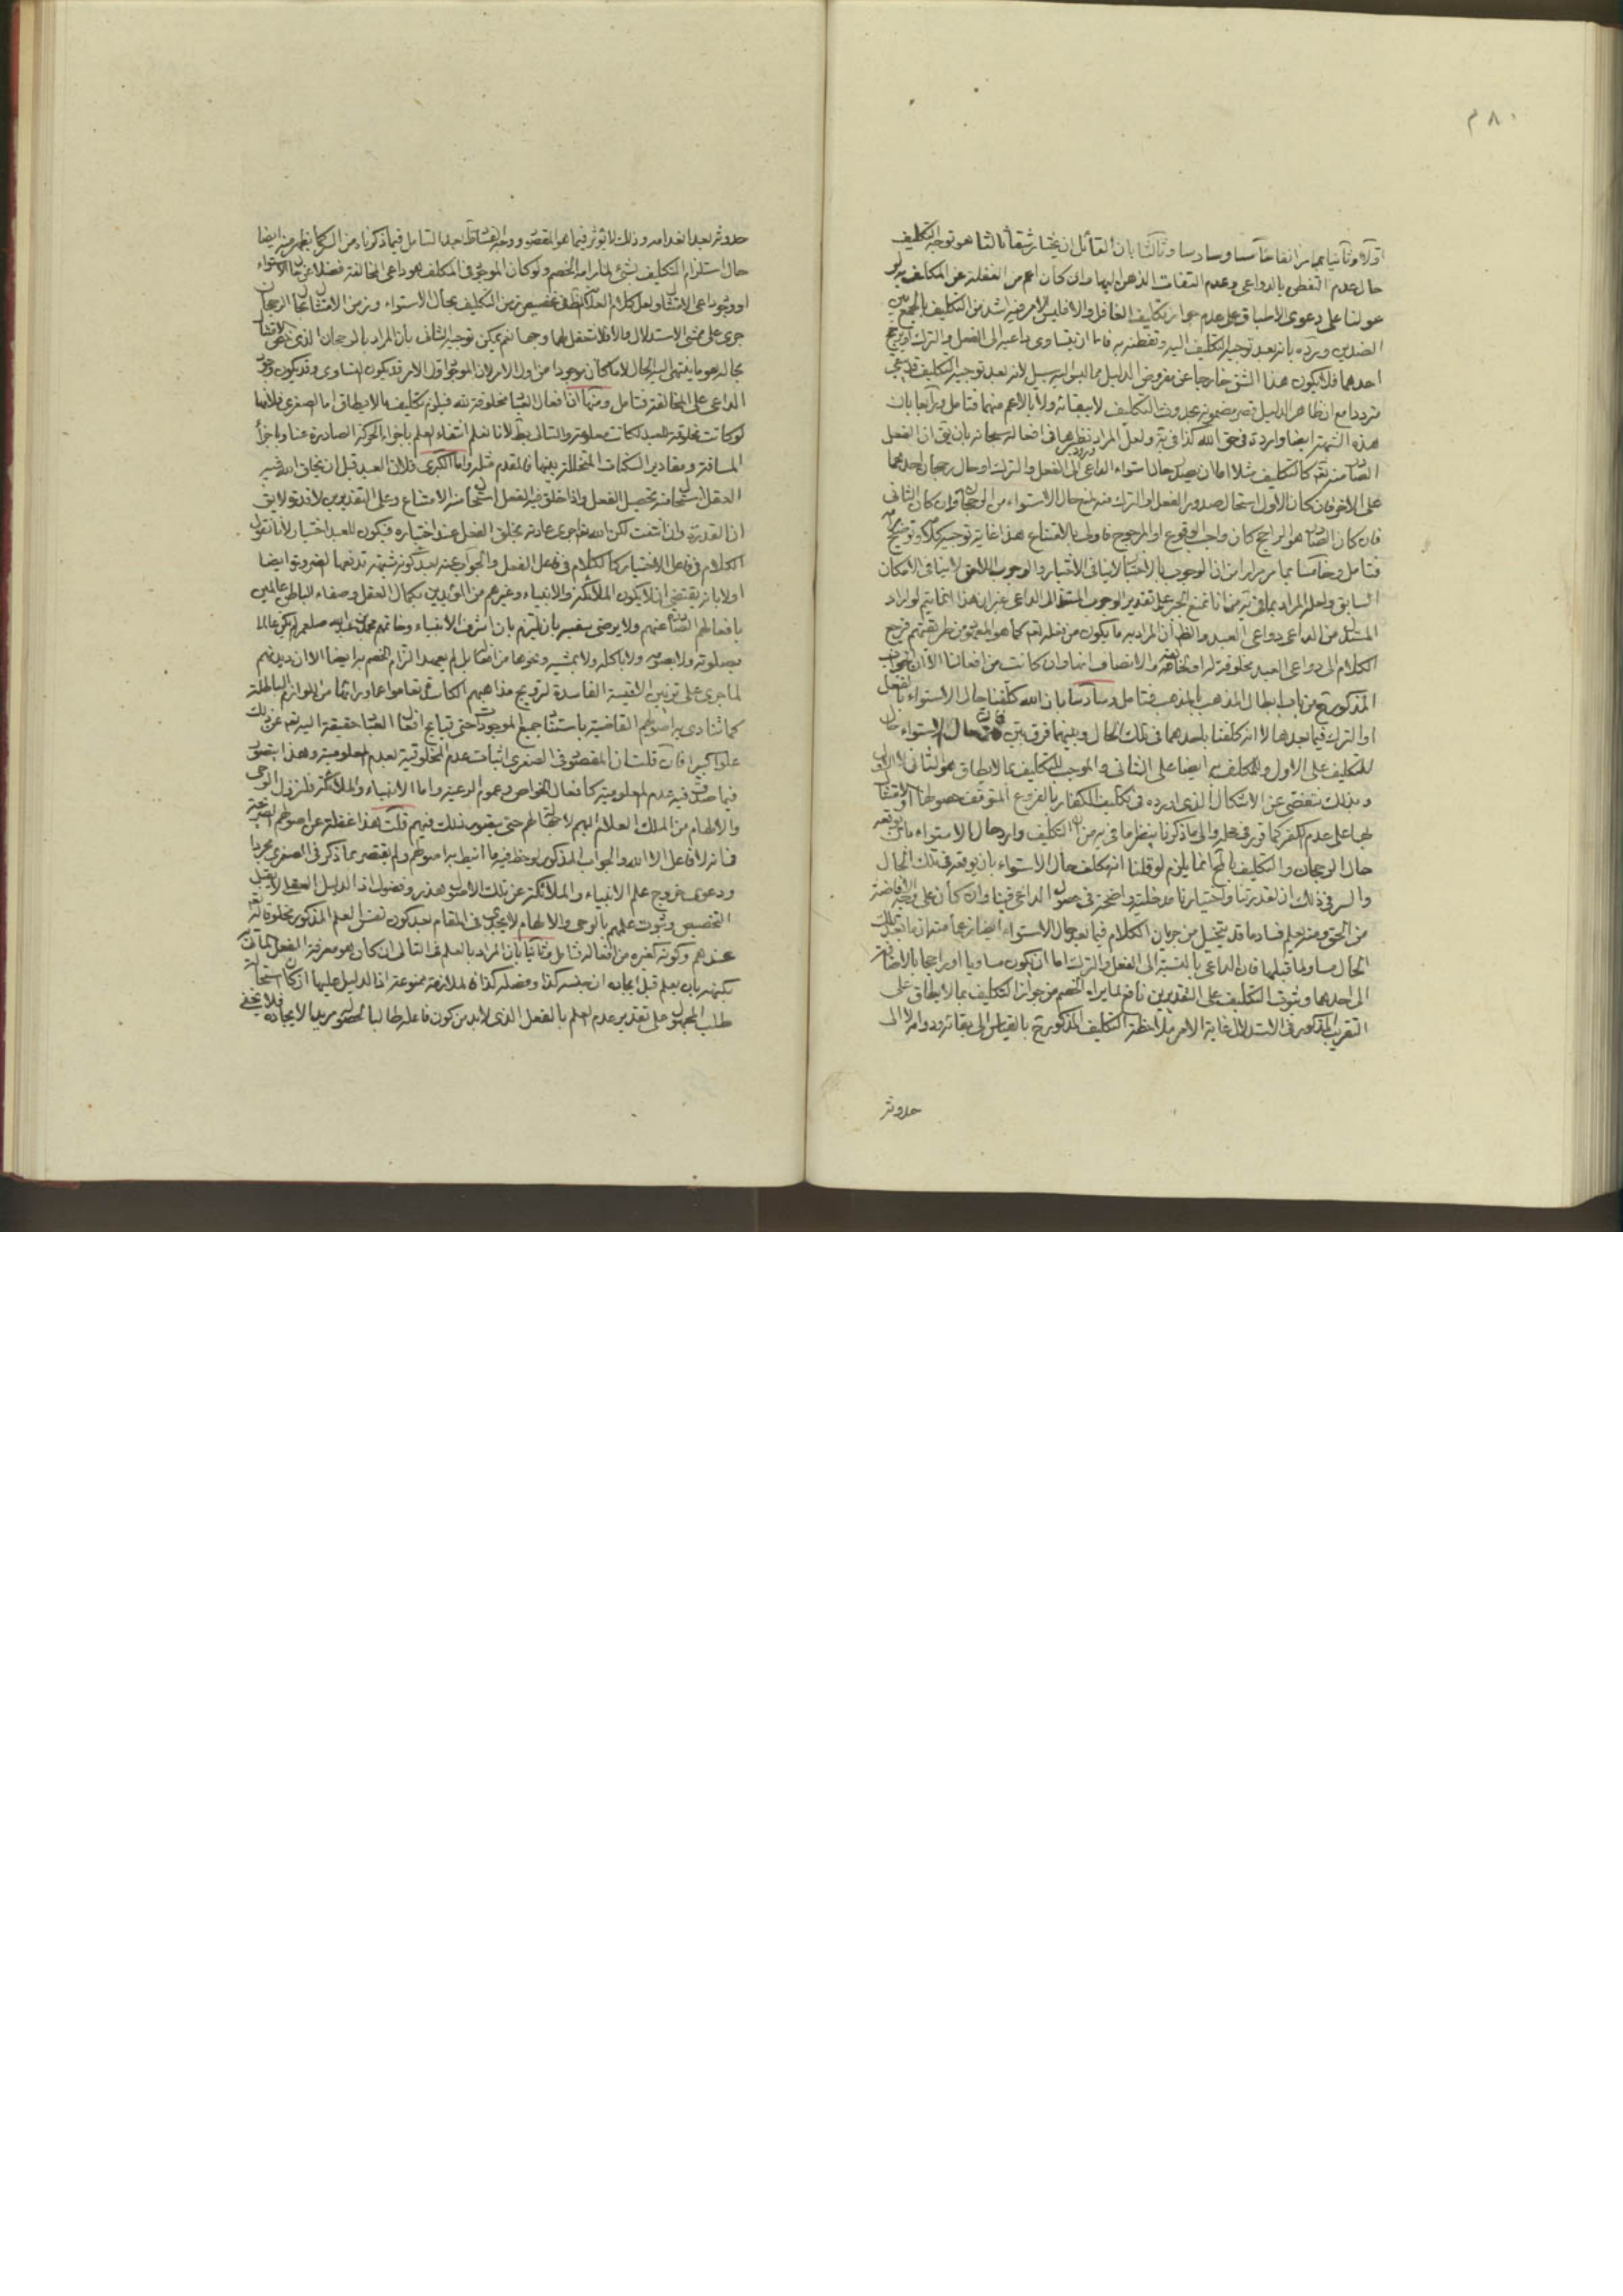 ٢٨٠
اولا وثانيا بما مر انفا خامسا وسادسا وثالثا بان القائل ان يختار شقا ثالثا هو توجه التكليف
حال عدم التفطن بالدواعى وعدم التفات الذهن اليها وان كان اعم من الغفلة عن المكلف به لو
عولنا على دعوى الاطباق على عدم جواز تكليف الغافل والا فليس الامر فيه اشد من التكليف بالجمع بين
الضدين ويرده بانه بعد توجيه التكليف اليه وتفطنه به فاما ان يتساوى داعيه الى الفعل والترك او يرجح
احدهما فلا يكون هذا الشق خارجا عن مفروض الدليل لانه بعد توجيه التكليف
مترددا مع ان ظاهر الدليل حدوث التكليف لا ببقائه ولا بالاعم منهما فتامل ورابعا بان
هذه الشبهة ايضا واردة فى حق الله كذا فى ولعل المراد نظيرها فى افعاله سبحانه بان يق ان الفعل
منه تعه كالتكليف مثلا اما ان يصدر حال استواء الداعى الى الفعل والترك او حال رجحان احدهما
على الاخر فان كان الاول استحال صدور الفعل او الترك منه حال الاستواء من وان كان الثانى
فان كان هو الراجح كان واجب الوقوع او المرجوح بالامتناع هذا غاية توجيه وتوضيح
فتامل وخامسا بما مر مرارا من ان الوجوب بالاختيار لا ينافى الاختيار والوجوب اللاحق لا ينافى الامكان
السابق ولعله المراد بما فى من انا نمنع الجبر على تقدير الوجوب المستند الى الداعى غير ان هذا انما يتم لو اراد
من الداعى دواعى العبد والظ ان المراد به ما يكون من فعله تعه كما هو من طريقتهم فرجع
الكلام الى دواعى العبد مخلوقة له او والانصاف انها وان كانت من افعالنا الا ان الجواب
المذكور ح من باب ابطال المذهب بالمذهب فتامل وسادسا بان الله كلفنا حال الاستواء بالفعل
او الترك فيما بعدها لا انه كلفنا باحدهما فى تلك الحال وبينهما فرق بين حال الاستواء حال
للتكليف على الاول وللمكلف به ايضا على الثانى والموجب للتكليف بما لا يطاق هو الثانى لا الاول
وبذلك نتفصى عن الاشكال الذى اورده فى تكليف الكفار بالفروع المتوقف حصولها
لها على عدم الكفر كما قرر فى محله والى ما ذكرنا ينظر ما فى من ان التكليف وارد حال الاستواء
حال الرجحان والتكليف بالمح انما يلزم لو قلنا انه مكلف حال الاستواء بان يوقعه فى تلك الحال
والسر فى ذلك ان لقدرتنا واختيارنا مدخلية واضحة فى حصول الداعى فينا وان كان على وجه الافاضة
من الحق ومنه يعلم فساد ما قد يتخيل من جريان الكلام فيما بعد حال الاستواء ايضا زعما منه ان ما بعد تلك
الحال مساو لما قبلها فان الداعى بالنسبة الى الفعل والترك اما ان يكون مساويا او راجحا بالاضافة
الى احدهما وثبوت التكليف على التقديرين نافع لما يراه الخصم من جواز التكليف بما لا يطاق على
التقريب المذكور فى الاستدلال غاية الامر ملاحظة التكليف المذكور ح بالقياس الى بقائه ودوامه لا الى
حدوثه
حدوثه بعد انعدامه وذلك لا يوثر فيما هو المقصود ووجه بعد التامل فيما ذكرناه من يظهر منه ايضا
حال استلزام التكليف بشئ لما رامه الخصم ولو كان الموجود فى المكلف هو داعى المخالفة فضلا عن حال الاستواء
او وجود داعى الامتثال ولعل كلام فى تخصيص زمن التكليف بحال الاستواء وزمن الامتثال بحال الرجحان
جرى على مشى الاستدلال والا فلا نتعقل لهما وجها نعم يمكن توجيه الثانى بان المراد بالرجحان الذى
بحاله هو ما ينتهى اليه الحال لا ما كان موجودا من اول الامر لان الموجود اول الامر قد يكون التساوى وقد يكون وجود
الداعى على المخالفة فتامل ومنها ان افعال العباد مخلوقة لله فيلزم تكليف ما لا يطاق اما الصغرى فلانها
لو كانت مخلوقة للعبد لكانت معلومة والتالى بط لانا نعلم انتفاء العلم باجزاء الحركة الصادرة عنا وباجزاء
المسافة ومقادير السكنات المتخللة بينهما فالمقدم مثله واما الكبرى فلان العبد قبل ان يخلق الله فيه
الفعل استحال منه تحصيل الفعل واذا خلق فيه الفعل استحال منه الامتناع وعلى التقديرين لا قدرة ولا يق
ان القدرة وان انتفت لكن الله تعه اجرى عادته بخلق الفعل عند اختياره فيكون للعبد اختيار لانا نقول
الكلام فى فاعل الاختيار كالكلام فى فاعل الفعل والجواب عنه بعد كونه شبهة تدفعها الضرورة ايضا
اولا بانه يقتضى ان لا يكون الملائكة والانبياء وغيرهم من المؤيدين بكمال العقل وصفاء الباطن عالمين
بافعالهم عنهم ولا يرضى متفسر بان يلتزم بان اشرف الانبياء وخاتمهم محمد بن عبد الله صلعم لم يكن عالما
بصلوته ولا بصومه ولا باكله ولا بمشيه ونحوها من لم يعهد التزام الخصم به ايضا الا ان ديدنهم
لما جرى على تزيين الاقيسة الفاسدة لترويج مذاهبهم الكاسدة تعاموا عما وراءها من اللوازم الباطلة
كما تنادى به اصولهم القاضية باستناد جميع الموجودات حتى قبايح افعال العباد حقيقة اليه تعه عن ذلك
علوا كبيرا فان قلت ان المقصود فى الصغرى اثبات عدم المخلوقية لعدم المعلومية وهذا
فيما صدق فيه عدم المعلومية كافعال الخواص وعموم الرعية واما الانبياء والملائكة فلنزول الوحى
والالهام من الملك العلام اليهم لا حتى يتفوه بذلك فيهم قلت هذا غفلة عن اصولهم
فانه لا فاعل الا الله والجواب المذكور لوحظ فيه ما انيط به اصولهم ولم يقتصر بما ذكر فى الصغرى مجردا
ودعوى خروج علم الانبياء والملائكة عن تلك الاصول هذر وفضول اذ الدليل العقلى لا يقبل
التخصيص وثبوت علمهم بالوحى والالهام لا يجدى فى المقام بعد كون نفس العلم المذكور مخلوقة له تعه
عندهم وكونه كغيره من افعاله فتامل وثانيا بان المراد بالعلم فى التالى ان كان هو معرفة الفعل بتمامه
بكنهه بان يعلم قبل ايجاده ان جنسه كذا وفصله كذا فالملازمة ممنوعة اذ الدليل عليها ان كان استحالة
طلب المجهول على تقدير عدم العلم بالفعل الذى لا بد من كون فاعله طالبا لحصوله مريدا لايجاده فلا يخفى